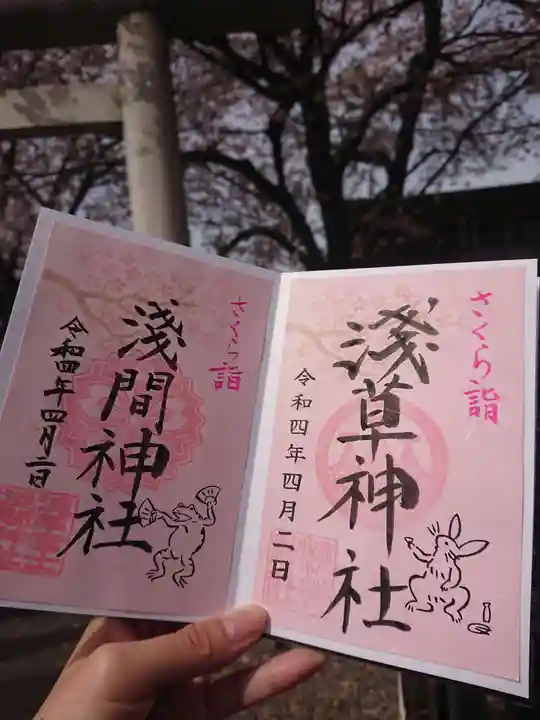 さくら詣
淺草神社
令和四年四月二日
さくら詣
淺間神社
令和四年四月二日